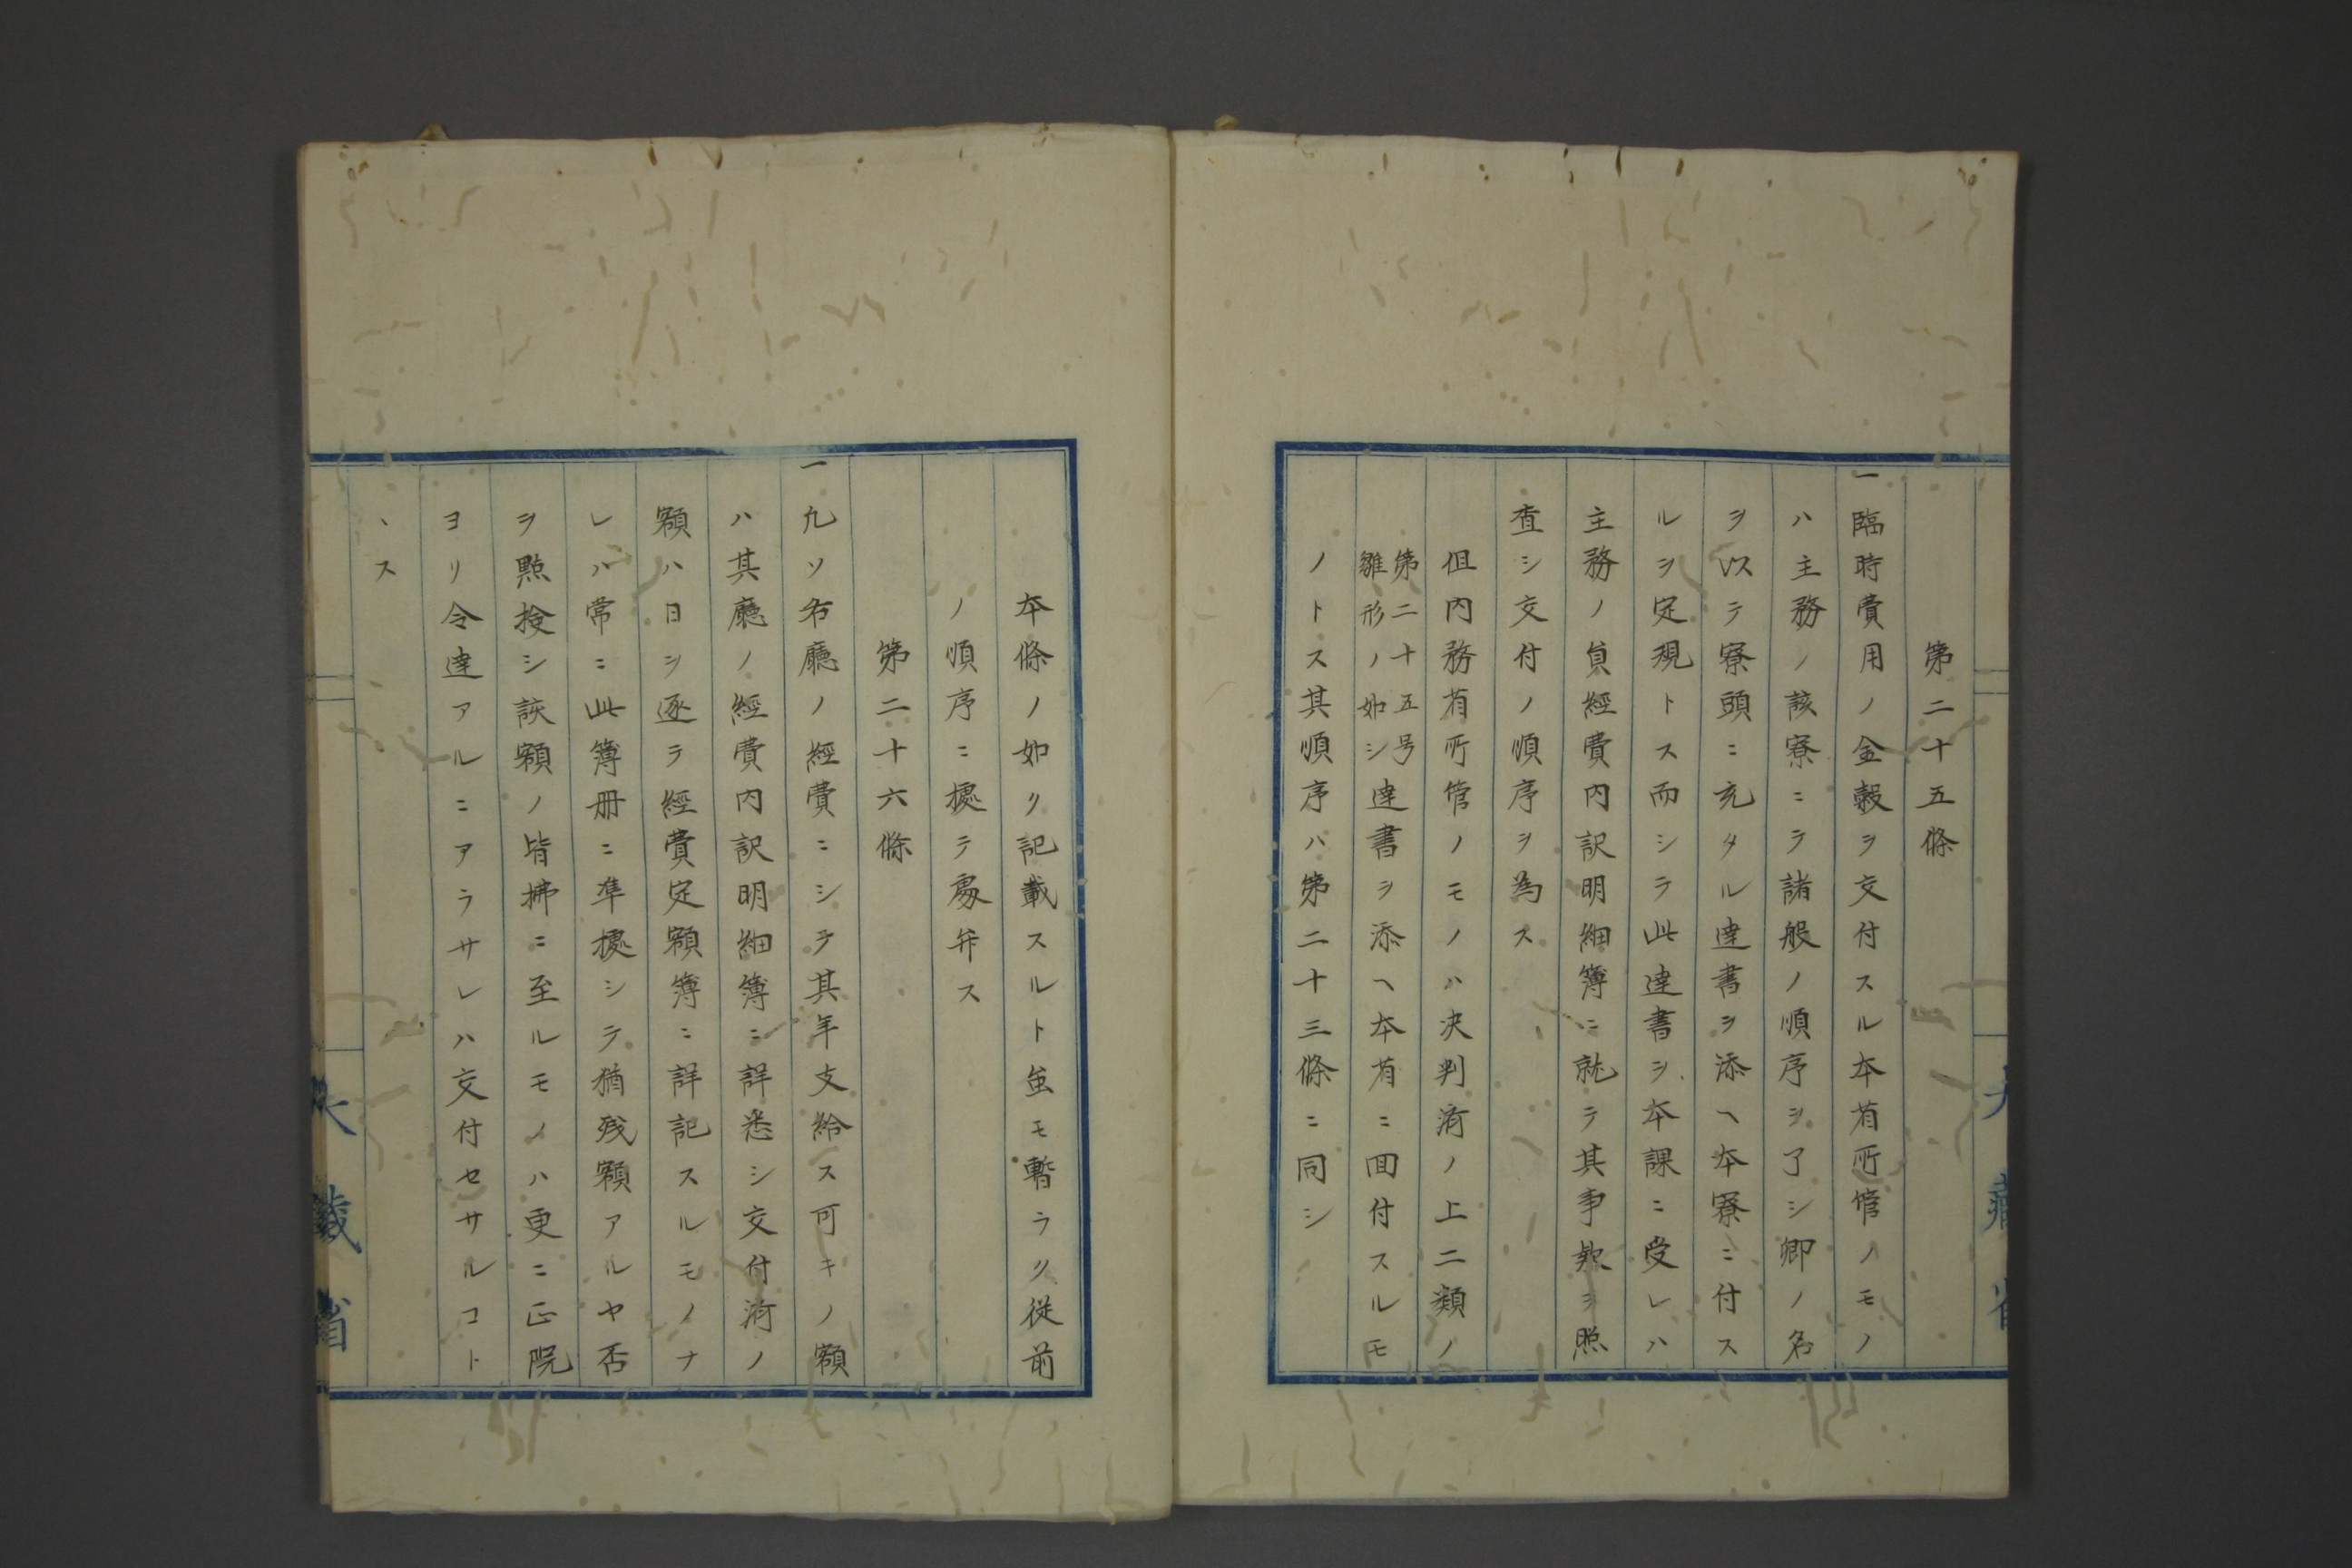 第二十五條
一臨時費用ノ金穀ヲ交付スル本省所管ノモノ
ハ主務ノ該寮ニテ諸般ノ順序ヲ了シ卿ノ名
ヲ以テ寮頭ニ充タル達書ヲ添ヘ本寮ニ付ス
ルヲ定規トス而シテ此達書ヲ本課ニ受レハ
主務ノ負經費内訳明細簿ニ就テ其事欵ヲ照
査シ交付ノ順序ヲ為ス
但内務省所管ノモノハ决判済ノ上二類ノ
第二十五号
雛形ノ如シ
達書ヲ添ヘ本省ニ回付スルモ
ノトス其順序ハ第二十三條ニ同シ
大藏省
本條ノ如ク記載スルト虽モ暫ラク従前
ノ順序ニ據テ處弁ス
第二十六條
一凢ソ各廳ノ經費ニシテ其年支給ス可キノ額
ハ其廳ノ經費内訳明細簿ニ詳悉シ交付済ノ
額ハ日ヲ逐テ經費定額簿ニ詳記スルモノナ
レハ常ニ此簿冊ニ準據シテ猶残額アルヤ否
ヲ點撿シ該額ノ皆拂ニ至ルモノハ更ニ正院
ヨリ令達アルニアラサレハ交付セサルコト
ヽス
大藏省